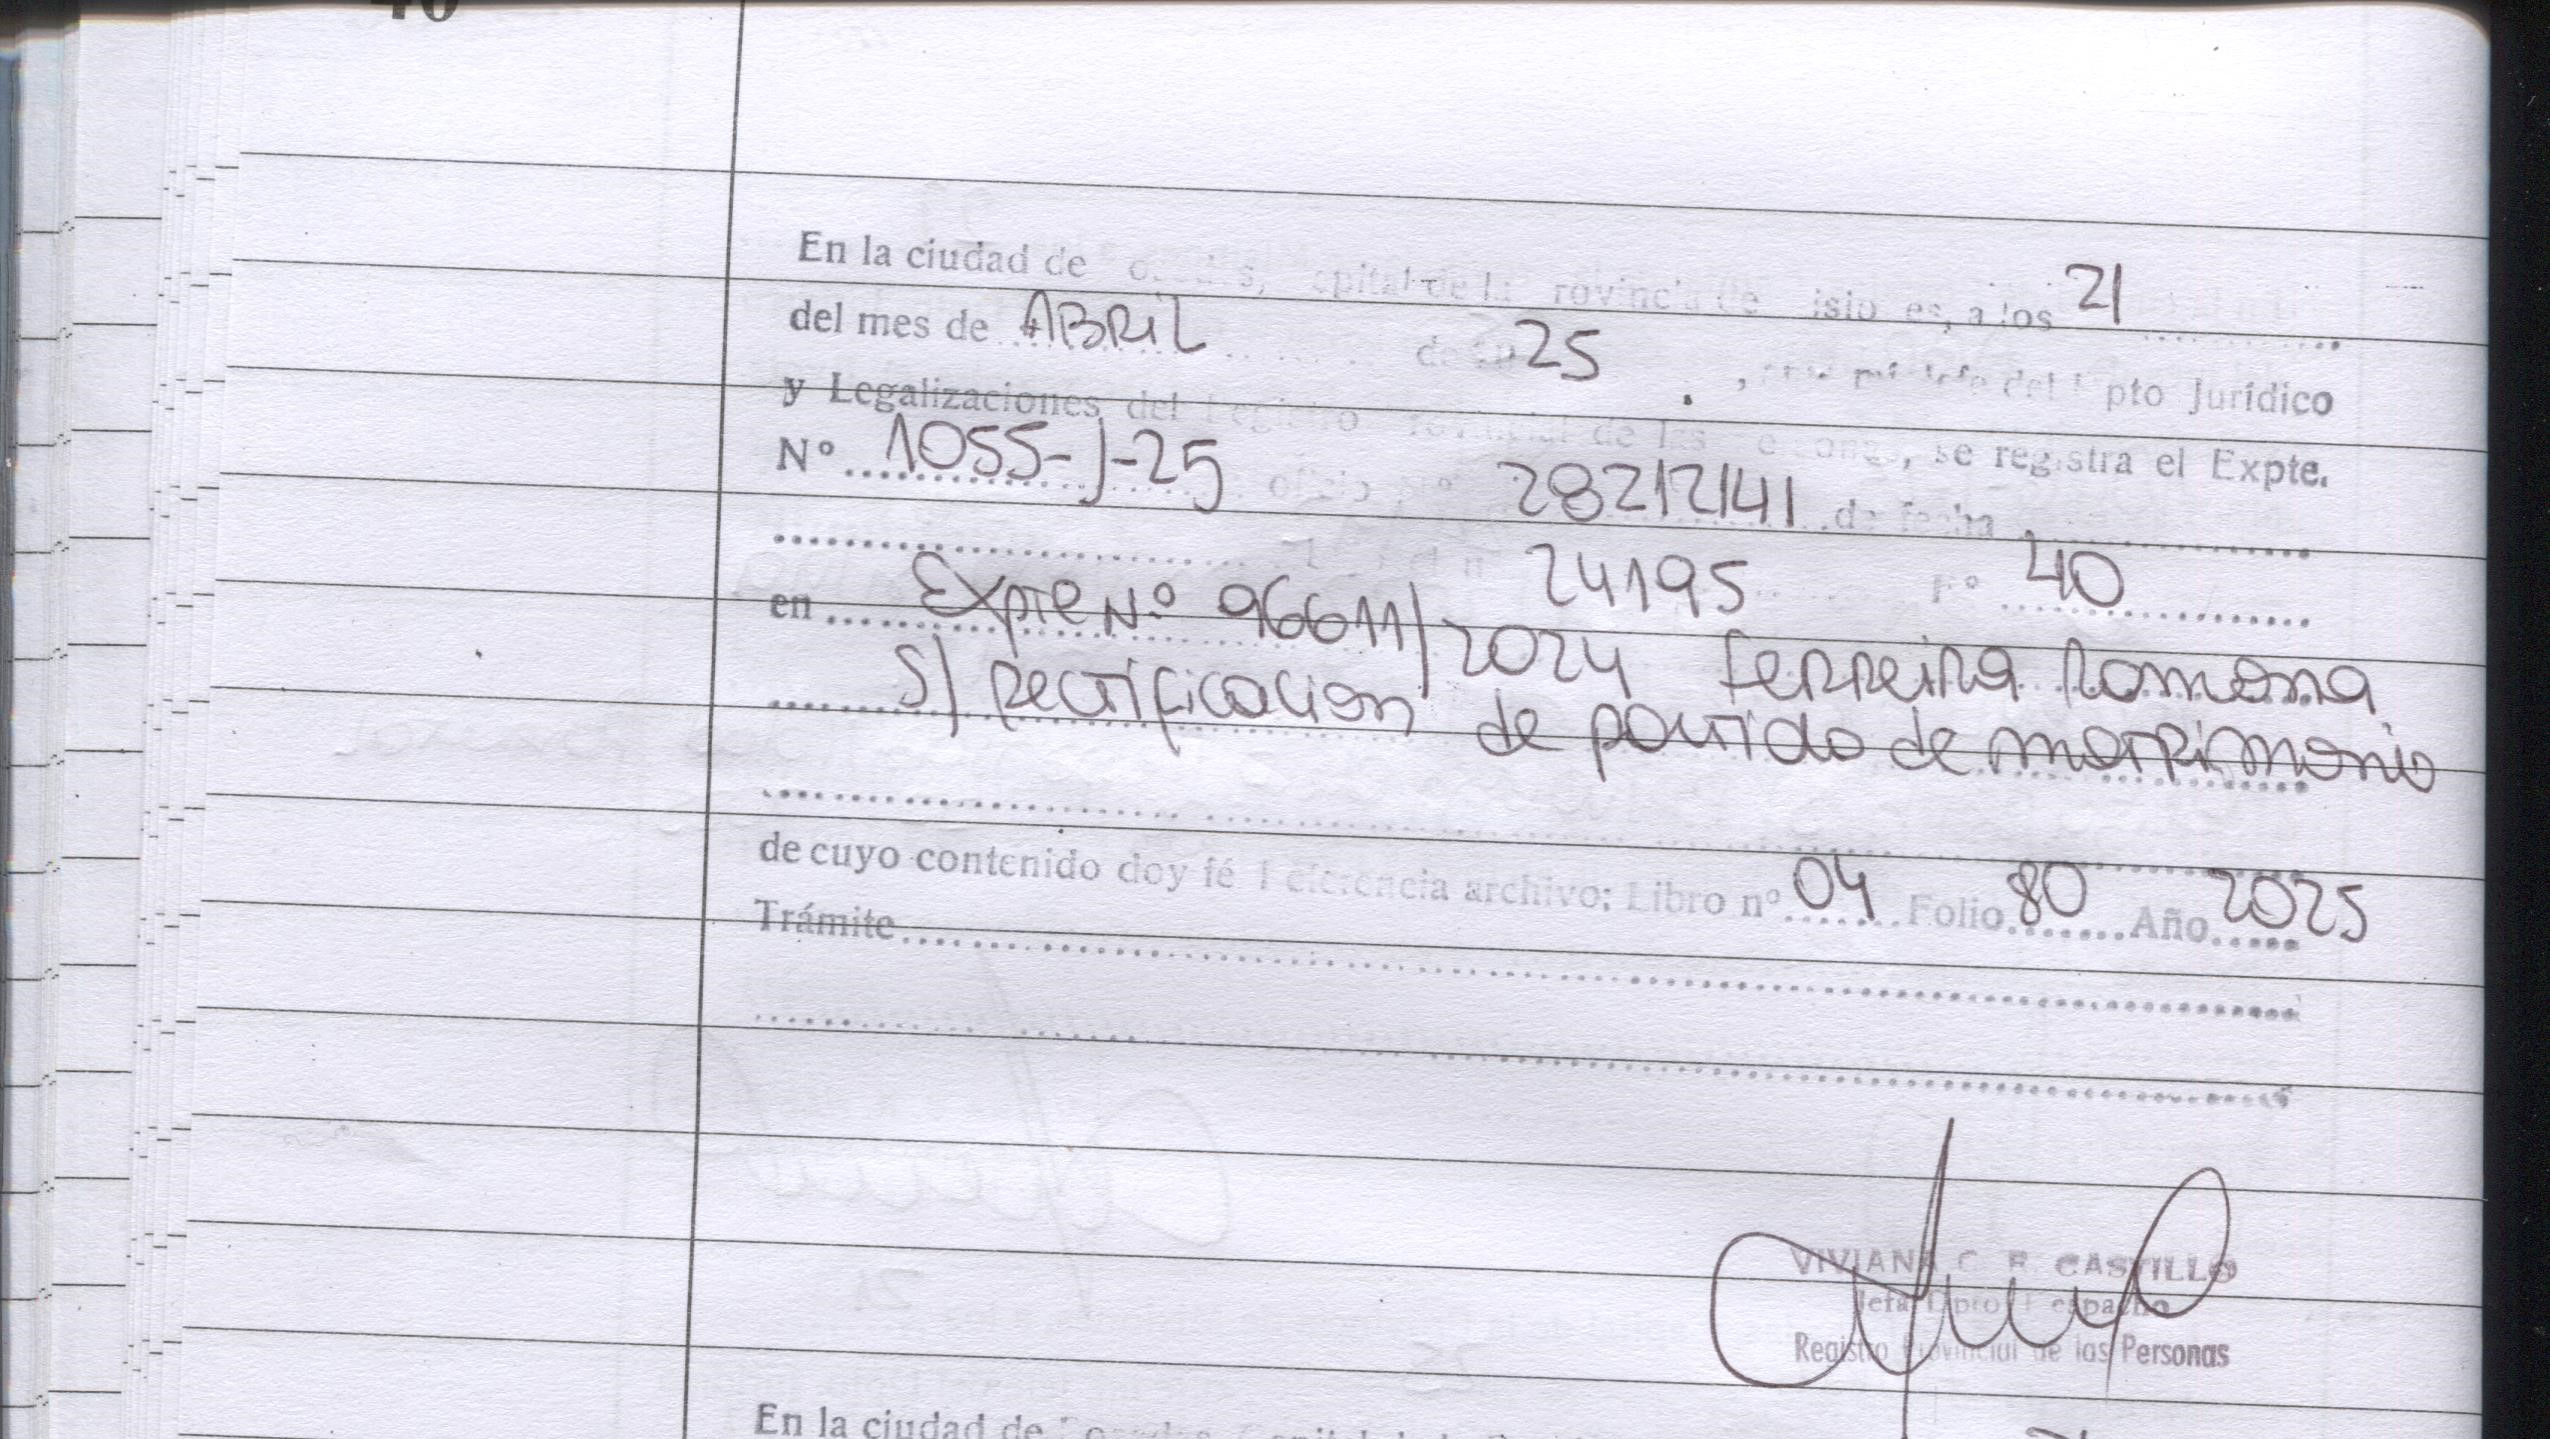 40
En la ciudad de Posadas, Capital de la Provincia de Misiones, a los 21
del mes de ABRIL de 25, ante mi Jefe del Dpto Jurídico
y Legalizaciones del Registro Provincial de las Personas, se registra el Expte.
Nº 1055-J-25 oficio nº 28212141 de fecha
24195 Fº 40
en Expte Nº 96611/2024 Ferreira Ramona
S/ Rectificacion de partida de matrimonio
de cuyo contenido doy fé Referencia archivo: Libro nº 04 Folio 80 Año 2025
Trámite
VIVIANA C. R. CASTILLO
Jefa Dpto Despacho
Registro Provincial de las Personas
En la ciudad de Posadas, Capital de la